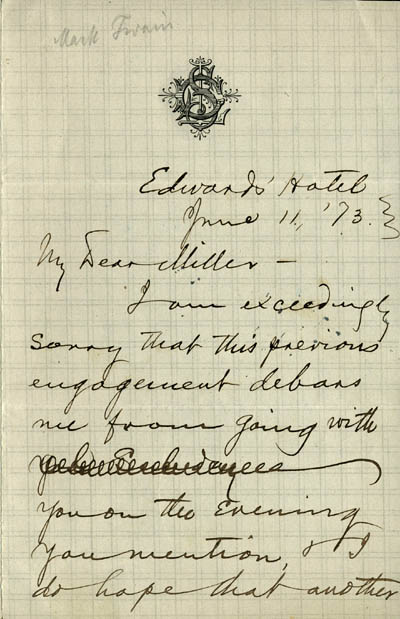 Mark Twain
SLC
Edwards' Hotel
June 11, '73.
My Dear Miller —
I am exceedingly
sorry that this previous
engagement debars
me from going with
you on the Evening
you mention, & I
do hope that another